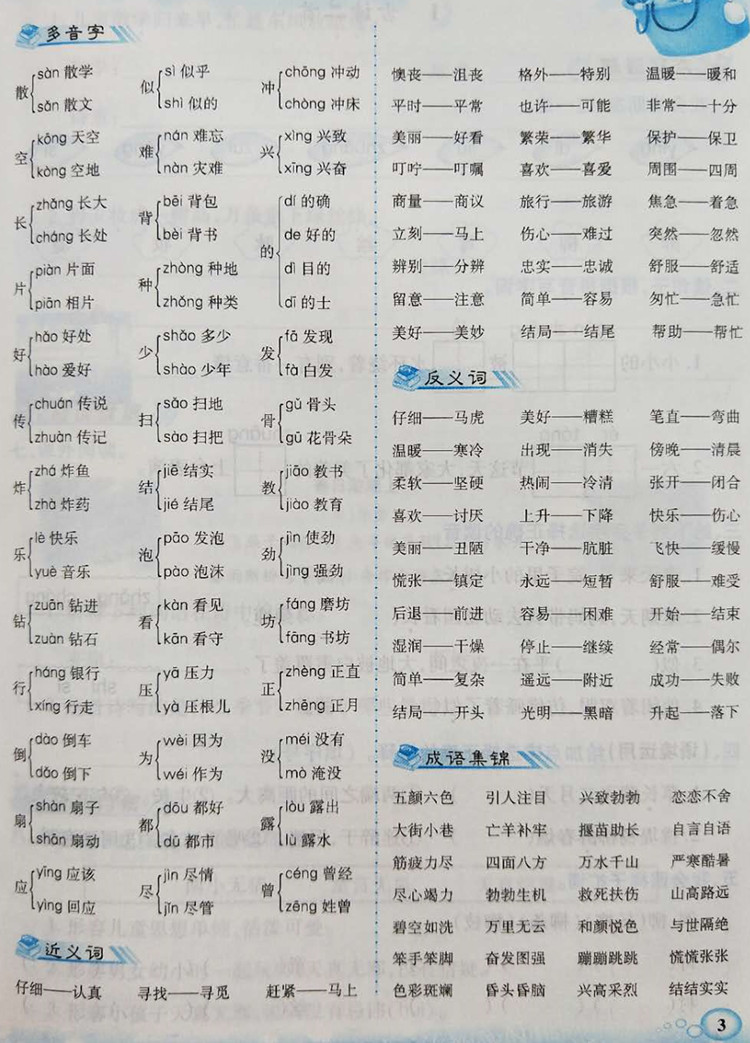 多音字
散 sàn 散学 似 sì 似乎 冲 chōng 冲动
sǎn 散文 shì 似的 chòng 冲床
空 kōng 天空 难 nán 难忘 兴 xìng 兴致
kòng 空地 nàn 灾难 xīng 兴奋
长 zhǎng 长大 背 bēi 背包 的 dí 的确
cháng 长处 bèi 背书 de 好的
片 piàn 片面 种 zhòng 种地 dì 目的
piān 相片 zhǒng 种类 dī 的士
好 hǎo 好处 少 shǎo 多少 发 fā 发现
hào 爱好 shào 少年 fà 白发
传 chuán 传说 扫 sǎo 扫地 骨 gǔ 骨头
zhuàn 传记 sào 扫把 gū 花骨朵
炸 zhá 炸鱼 结 jiē 结实 教 jiāo 教书
zhà 炸药 jié 结尾 jiào 教育
乐 lè 快乐 泡 pāo 发泡 劲 jìn 使劲
yuè 音乐 pào 泡沫 jìng 强劲
钻 zuān 钻进 看 kàn 看见 坊 fáng 磨坊
zuàn 钻石 kān 看守 fāng 书坊
行 háng 银行 压 yā 压力 正 zhèng 正直
xíng 行走 yà 压根儿 zhēng 正月
倒 dào 倒车 为 wèi 因为 没 méi 没有
dǎo 倒下 wéi 作为 mò 淹没
扇 shàn 扇子 都 dōu 都好 露 lòu 露出
shān 扇动 dū 都市 lù 露水
应 yīng 应该 尽 jìn 尽情 曾 céng 曾经
yìng 回应 jǐn 尽管 zēng 姓曾
近义词
仔细——认真 寻找——寻觅 赶紧——马上
懊丧——沮丧 格外——特别 温暖——暖和
平时——平常 也许——可能 非常——十分
美丽——好看 繁荣——繁华 保护——保卫
叮咛——叮嘱 喜欢——喜爱 周围——四周
商量——商议 旅行——旅游 焦急——着急
立刻——马上 伤心——难过 突然——忽然
辨别——分辨 忠实——忠诚 舒服——舒适
留意——注意 简单——容易 匆忙——急忙
美好——美妙 结局——结尾 帮助——帮忙
反义词
仔细——马虎 美好——糟糕 笔直——弯曲
温暖——寒冷 出现——消失 傍晚——清晨
柔软——坚硬 热闹——冷清 张开——闭合
喜欢——讨厌 上升——下降 快乐——伤心
美丽——丑陋 干净——肮脏 飞快——缓慢
慌张——镇定 永远——短暂 舒服——难受
后退——前进 容易——困难 开始——结束
湿润——干燥 停止——继续 经常——偶尔
简单——复杂 遥远——附近 成功——失败
结局——开头 光明——黑暗 升起——落下
成语集锦
五颜六色 引人注目 兴致勃勃 恋恋不舍
大街小巷 亡羊补牢 揠苗助长 自言自语
筋疲力尽 四面八方 万水千山 严寒酷暑
尽心竭力 勃勃生机 救死扶伤 山高路远
碧空如洗 万里无云 和颜悦色 与世隔绝
笨手笨脚 奋发图强 蹦蹦跳跳 慌慌张张
色彩斑斓 昏头昏脑 兴高采烈 结结实实
3